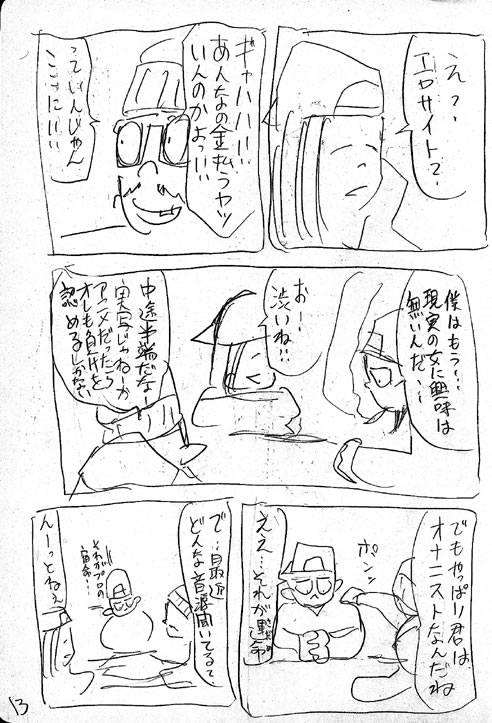 えっ、、
エロサイト?
ギャハハハ!!
あんなの金払うヤツ
いんのかよっ!!
っているんじゃん
ここに!!!
僕はもう…
現実の女に興味は
無いんだ、、、
おー!
渋いね!!
中途半端だな!
実写じゃねーか
アニメだったら
オレも負けを
認めるしかない
でもやっぱり君は
オナニストなんだね
ポンッ
ええ…それが
運命
で…最近
どんな音源聞いてるて
それがプロの
宿命…
んーっとねぇ
13